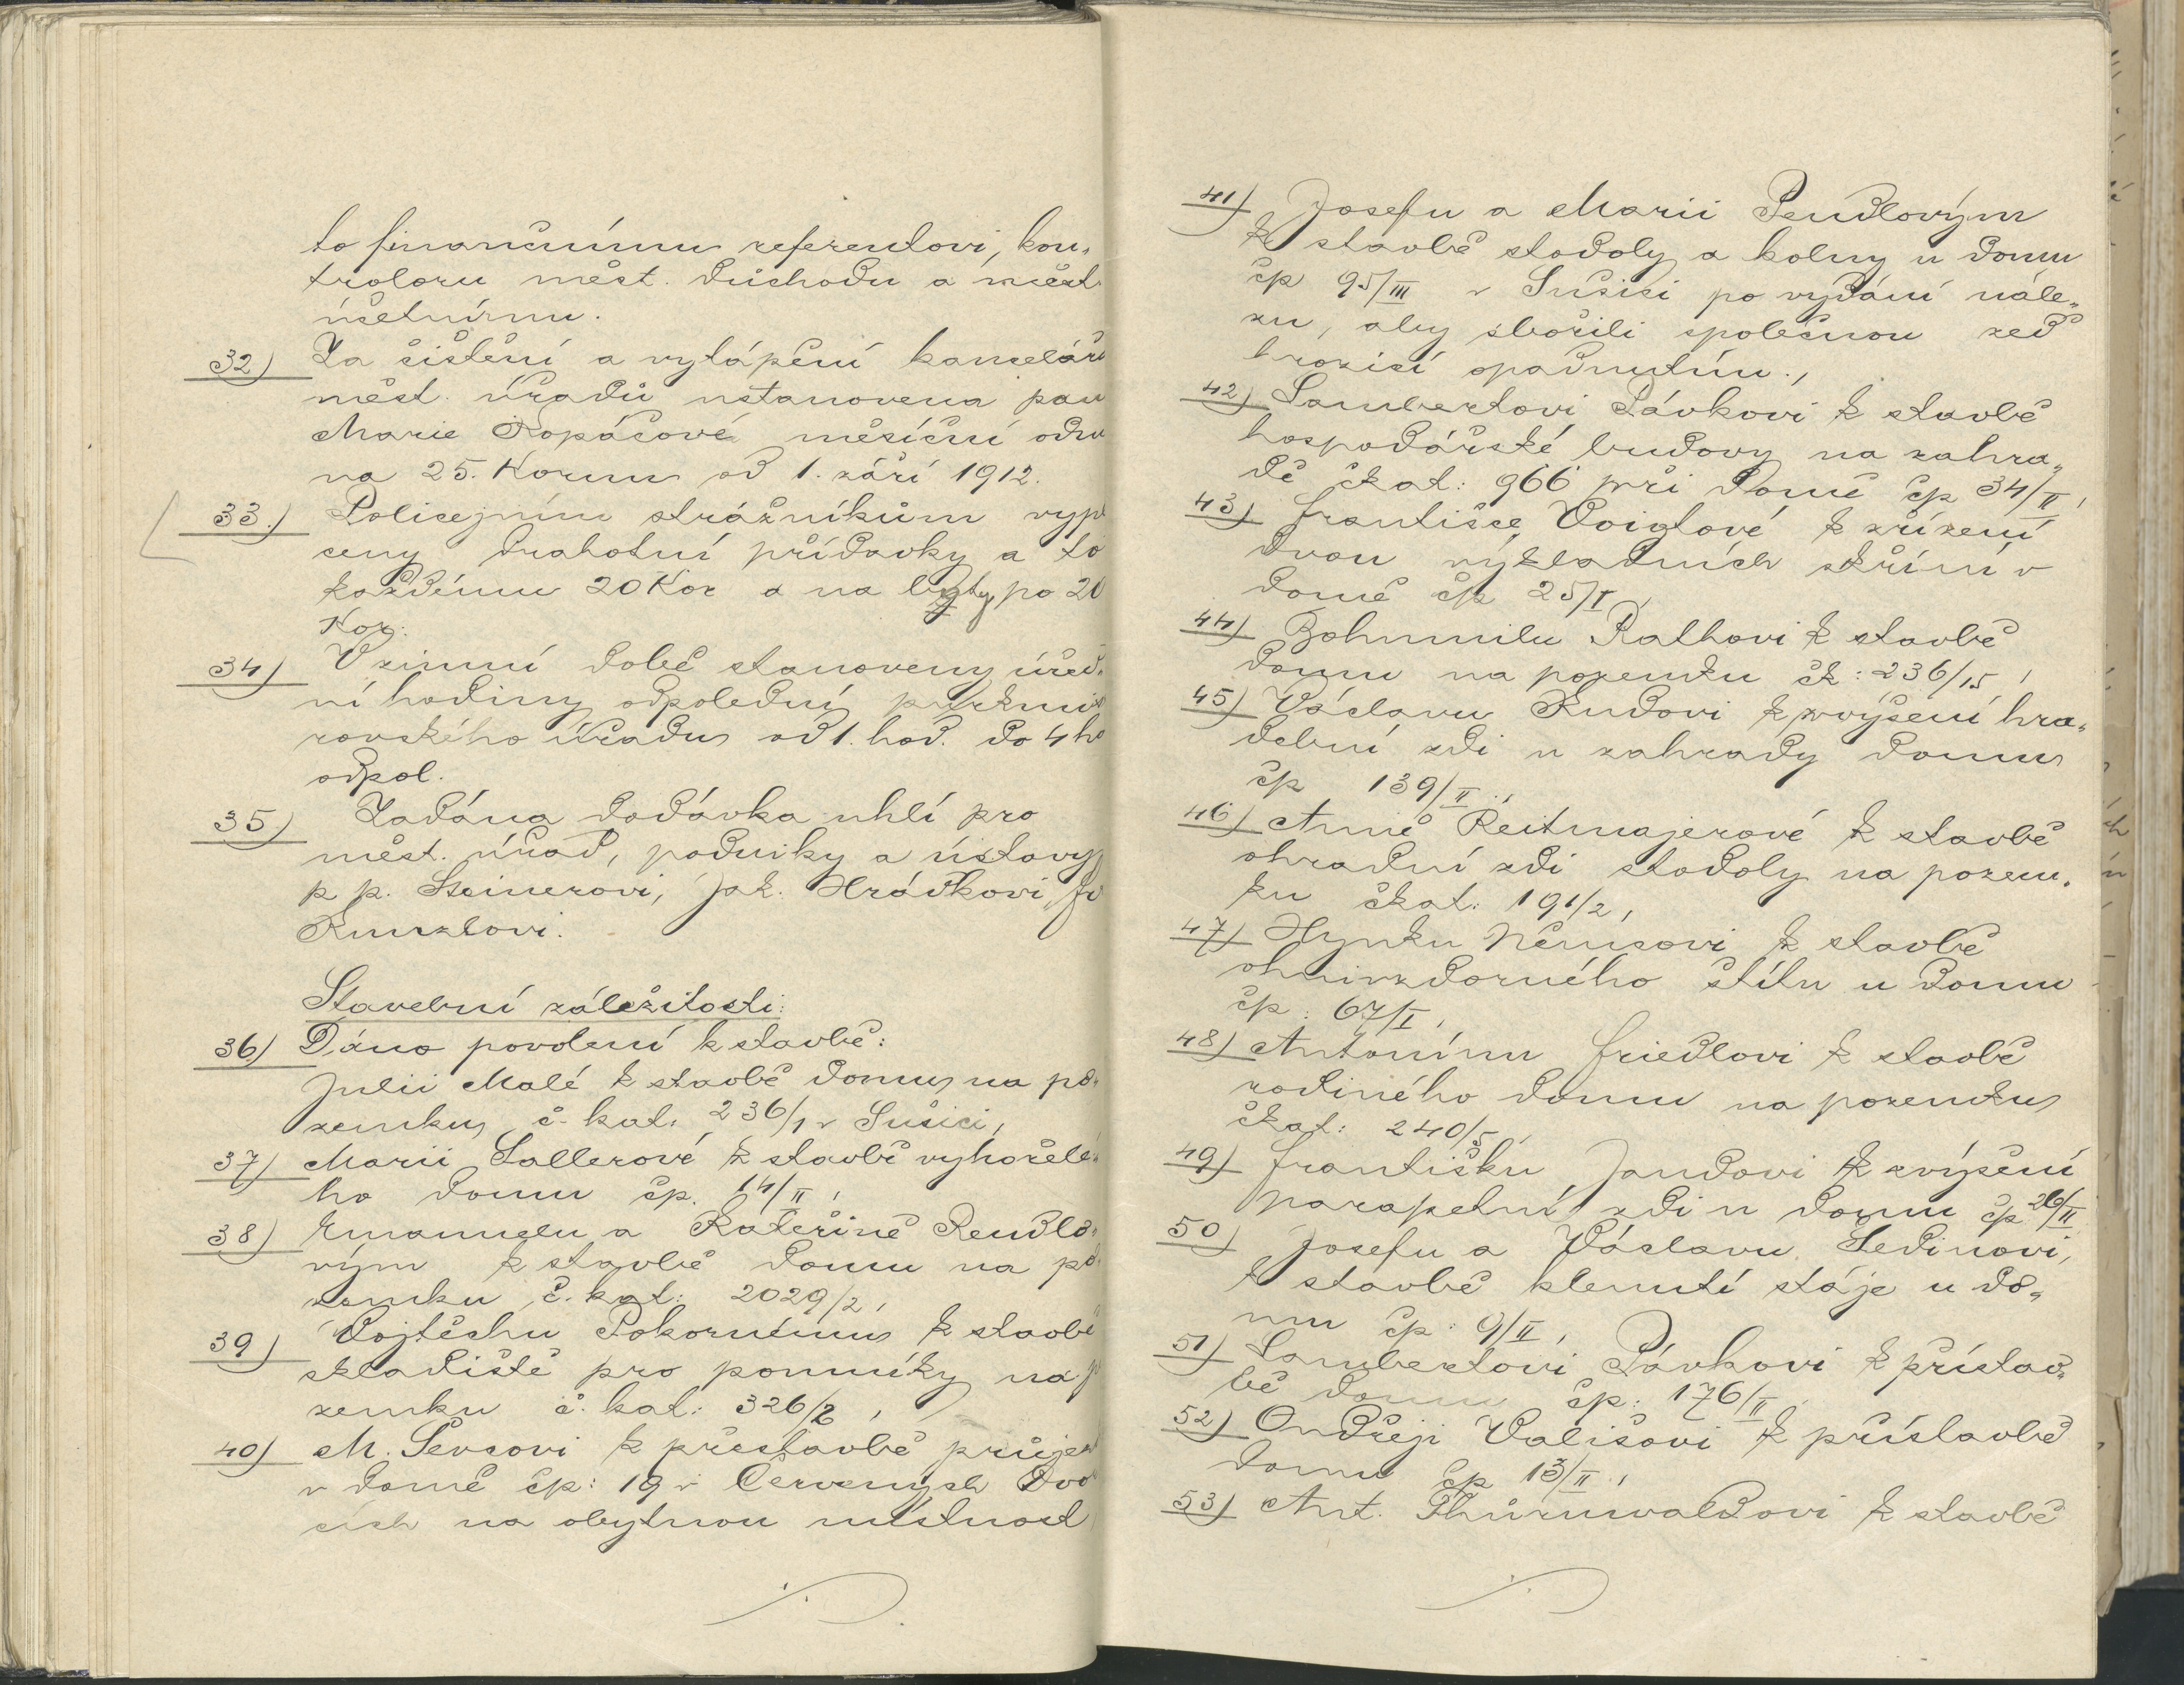 to finančnímu referentovi, kon„
troloru měst. důchodu a měst.
účetnímu.
32) Za čistění a vytápění kanceláří
měst. úřadů ustanovena paní
Marie Kopáčové měsíční odm
na 25. Korun od 1. září 1912.
33.) Policejním strážníkům vypl
ceny drahotní přídavky a to
každému 20 Kor a na byty po 20
Kor.
34) V zimní době stanoveny úřed„
ní hodiny odpolední purkmis
rovského úřadu od 1. hod. do 4 ho
odpol.
35) Zadána dodávka uhlí pro
měst. úřad, podniky a ústavy
p p. Steinerovi, Jak. Hrádkovi, Fr
Kunzlovi.
Stavební záležitosti:
36) Dáno povolení k stavbě:
Julii Malé k stavbě domu na po„
zemku č. kat. 236/1 v Sušici,
37) Marii Sallerové k stavbě vyhořelé„
ho domu čp. 14/II,
38) Emanuelu a Kateřině Rendlo„
vým k stavbě domu na po„
zemku č. kat: 2029/2,
39) Vojtěchu Pokornému k stavbě
skladiště pro pomníky na p
zemku č. kat: 326/2,
40) M. Ševcovi k přestavbě průjez
v domě čp: 19 v Červených Dvo
cích na obytnou místnost
41) Josefu a Marii Pendlovým
k stavbě stodoly a kolny u domu
čp 95/III v Sušici po vydání nále„
zu, aby sbořili společnou zeď
hrozící spadnutím.,
42) Lambertovi Pávkovi k stavbě
hospodářské budovy na zahra„
dě čkat: 966 při domě čp 34/II,
43) Františce Voigtové k zřízení
dvou výkladních skříní v
domě čp 25/I,
44) Bohumilu Rathovi k stavbě
domu na pozemku čk: 236/15,
45) Václavu Kudovi k zvýšení hra„
dební zdi u zahrady domu
čp 139/II.,
46) Anně Reitmajerové k stavbě
ohradní zdi stodoly na pozem„
ku čkat: 191/2,
47) Hynku Němcovi k stavbě
ohnivzdorného štítu u domu
čp: 67/I,
48) Antonínu Friedlovi k stavbě
rodiného domu na pozemku
čkat: 240/5,
49) Františku Jandovi k zvýšení
parapetní zdi u domu čp 26/II
50) Josefu a Václavu Šedinovi,
k stavbě klenutí stáje u do„
mu čp: 9/II,
51) Lambertovi Pávkovi k přístav„
bě domu čp: 176/II,
52) Ondřeji Vališovi k přístavbě
domu čp 13/II.,
53) Ant. Thürnwaldovi k stavbě